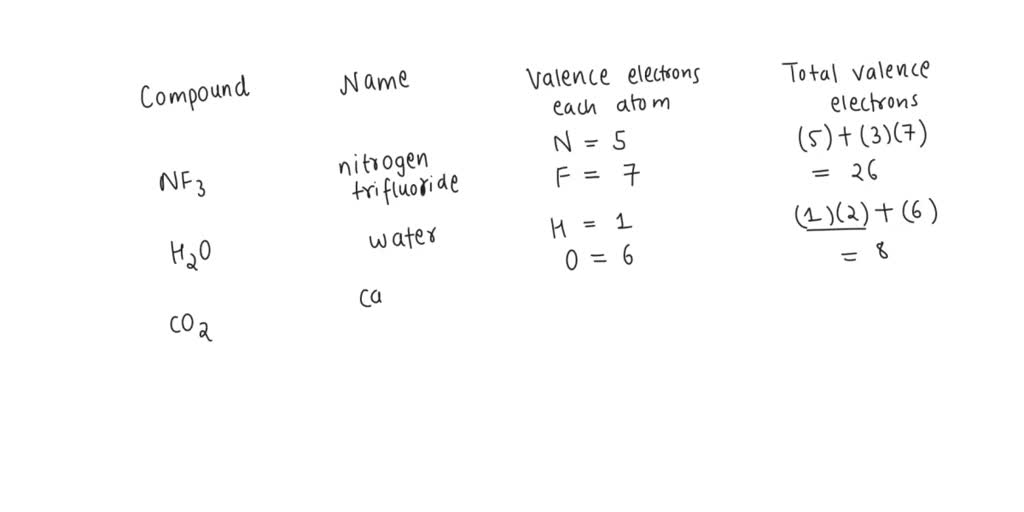 Compound Name Valence electrons each atom Total valence electrons
NF3 nitrogen trifluoride N = 5 F = 7 (5) + (3)(7) = 26
H2O water H = 1 O = 6 (1)(2) + (6) = 8
CO2 ca